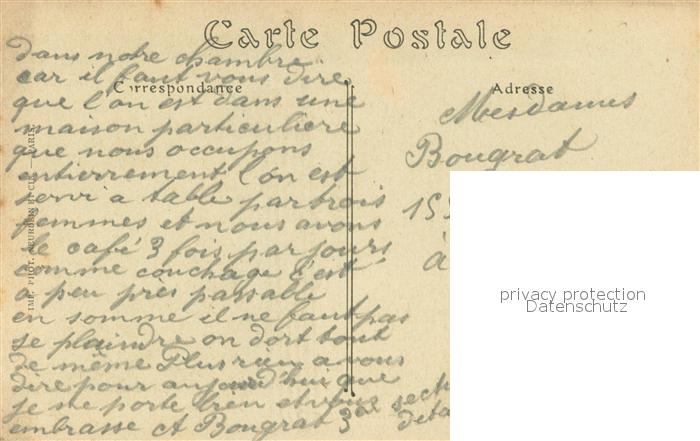 Carte Postale
Correspondance
Adresse
dans notre chambre
car il faut vous dire
que l'on est dans une
maison particuliere
que nous occupons
entierrement l'on est
servi a table par trois
femmes et nous avons
le café 3 fois par jours
comme couchage c'est
a peu près passable
en somme il ne faut pas
se plaindre on dort tout
de même Plus rien a vous
dire pour aujourd'hui que
je me porte bien et vous
embrasse A Bougrat 3e sect
déta
Mesdames
Bougrat
15
à
IMP. PHOT. PARIS
privacy protection
Datenschutz